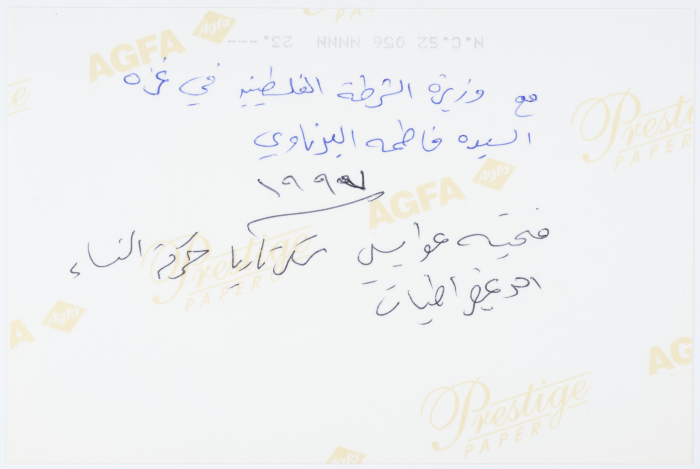 N.C.52 056 NNNN 23.---
AGFA
Agfa
Prestige
PAPER
مع وزيرة الشرطة الفلسطينيه في غزه
السيده فاطمه البرناوي
١٩٩٧
فتحيه عوايسي سكرتاريا حركة النساء
الديمقراطيات
Prestige
PAPER
AGFA
Agfa
Prestige
PAPER
AGFA
Agfa
Prestige
PAPER
AGFA
Agfa